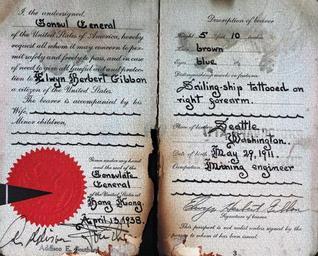 I, the undersigned,
Consul General
of the United States of America, hereby
request all whom it may concern to per-
mit safely and freely to pass, and in case
of need to give all lawful aid and protec-
tion to Elwyn Herbert Gibbon
a citizen of the United States.
The bearer is accompanied by his
Wife,
Minor children,
Given under my hand
and the seal of the
Consulate
General
of the United States at
Hong Kong.
April 13, 1938.
Addison E. Southard
Description of bearer
Height 5 feet 10 inches
Hair brown
Eyes blue
Distinguishing marks or features:
Sailing-ship tattooed on
right forearm.
Place of birth Seattle,
Washington.
Date of birth May 29, 1911.
Occupation Mining engineer
Elwyn Herbert Gibbon
Signature of bearer
This passport is not valid unless signed by the
person to whom it has been issued.
3